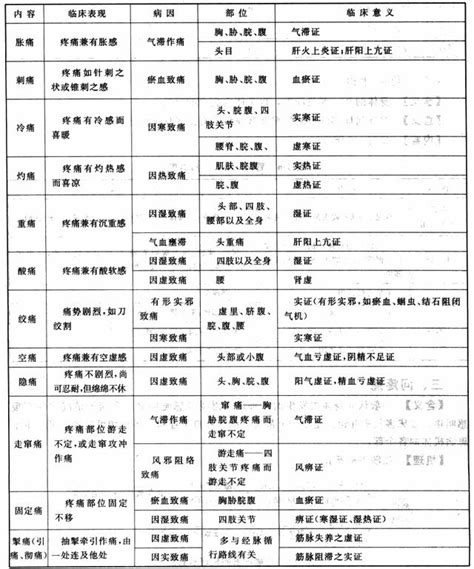 内容 临床表现 病因 部位 临床意义
胀痛 疼痛兼有胀感 气滞作痛 胸、胁、脘、腹 气滞证
头目 肝火上炎证;肝阳上亢证
刺痛 疼痛如针刺之
状或锥刺之感 瘀血致痛 胸、胁、脘、腹 血瘀证
冷痛 疼痛有冷感而
喜暖 因寒致痛 头、脘腹、四
肢关节 实寒证
腰脊、脘、腹、 虚寒证
灼痛 疼痛有灼热感
而喜凉 因热致痛 肌肤、脘腹 实热证
脘、腹 虚热证
重痛 疼痛兼有沉重感 因湿致痛 头部、四肢、
腰部以及全身 湿证
气血壅滞 头重痛 肝阳上亢证
酸痛 疼痛兼有酸软感 因湿致痛 四肢以及全身 湿证
因虚致痛 腰 肾虚
绞痛 痛势剧烈,如刀
绞割 有形实邪
致痛 虚里、脐腹、
脘、腹、腰 实证(有形实邪,如瘀血、蛔虫、结石阻闭
气机)
因寒致痛 实寒证
空痛 疼痛兼有空虚感 因虚致痛 头部或小腹 气血亏虚证,阴精不足证
隐痛 疼痛不剧烈,尚
可忍耐,但绵绵不休 因虚致痛 头、胸、脘、腹 阳气虚证,精血亏虚证
走窜痛 疼痛部位游走
不定,或走窜攻冲
作痛 气滞作痛 窜痛——胸
胁脘腹疼痛而
走窜不定 气滞证
风邪阻络
致痛 游走痛——四
肢关节疼痛而
游走不定 风痹证
固定痛 疼痛部位固定
不移 瘀血致痛 胸胁脘腹 血瘀证
因湿致痛 四肢关节 痹证(寒湿证、湿热证)
掣痛(引
痛、彻痛) 抽掣牵引作痛,由
一处连及他处 因虚致痛 多与经脉循
行路线有关 筋脉失养之虚证
因实致痛 筋脉阻滞之实证